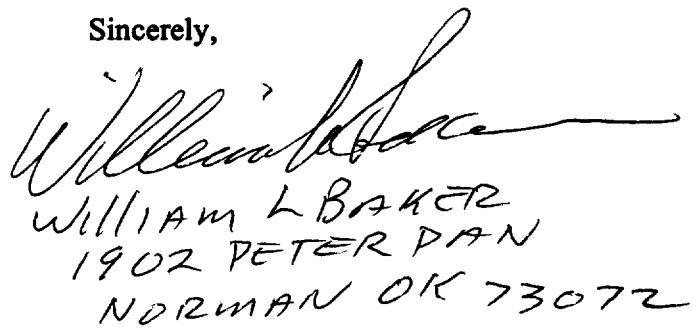 Sincerely,
William L Baker
WILLIAM L BAKER
1902 PETER PAN
NORMAN OK 73072